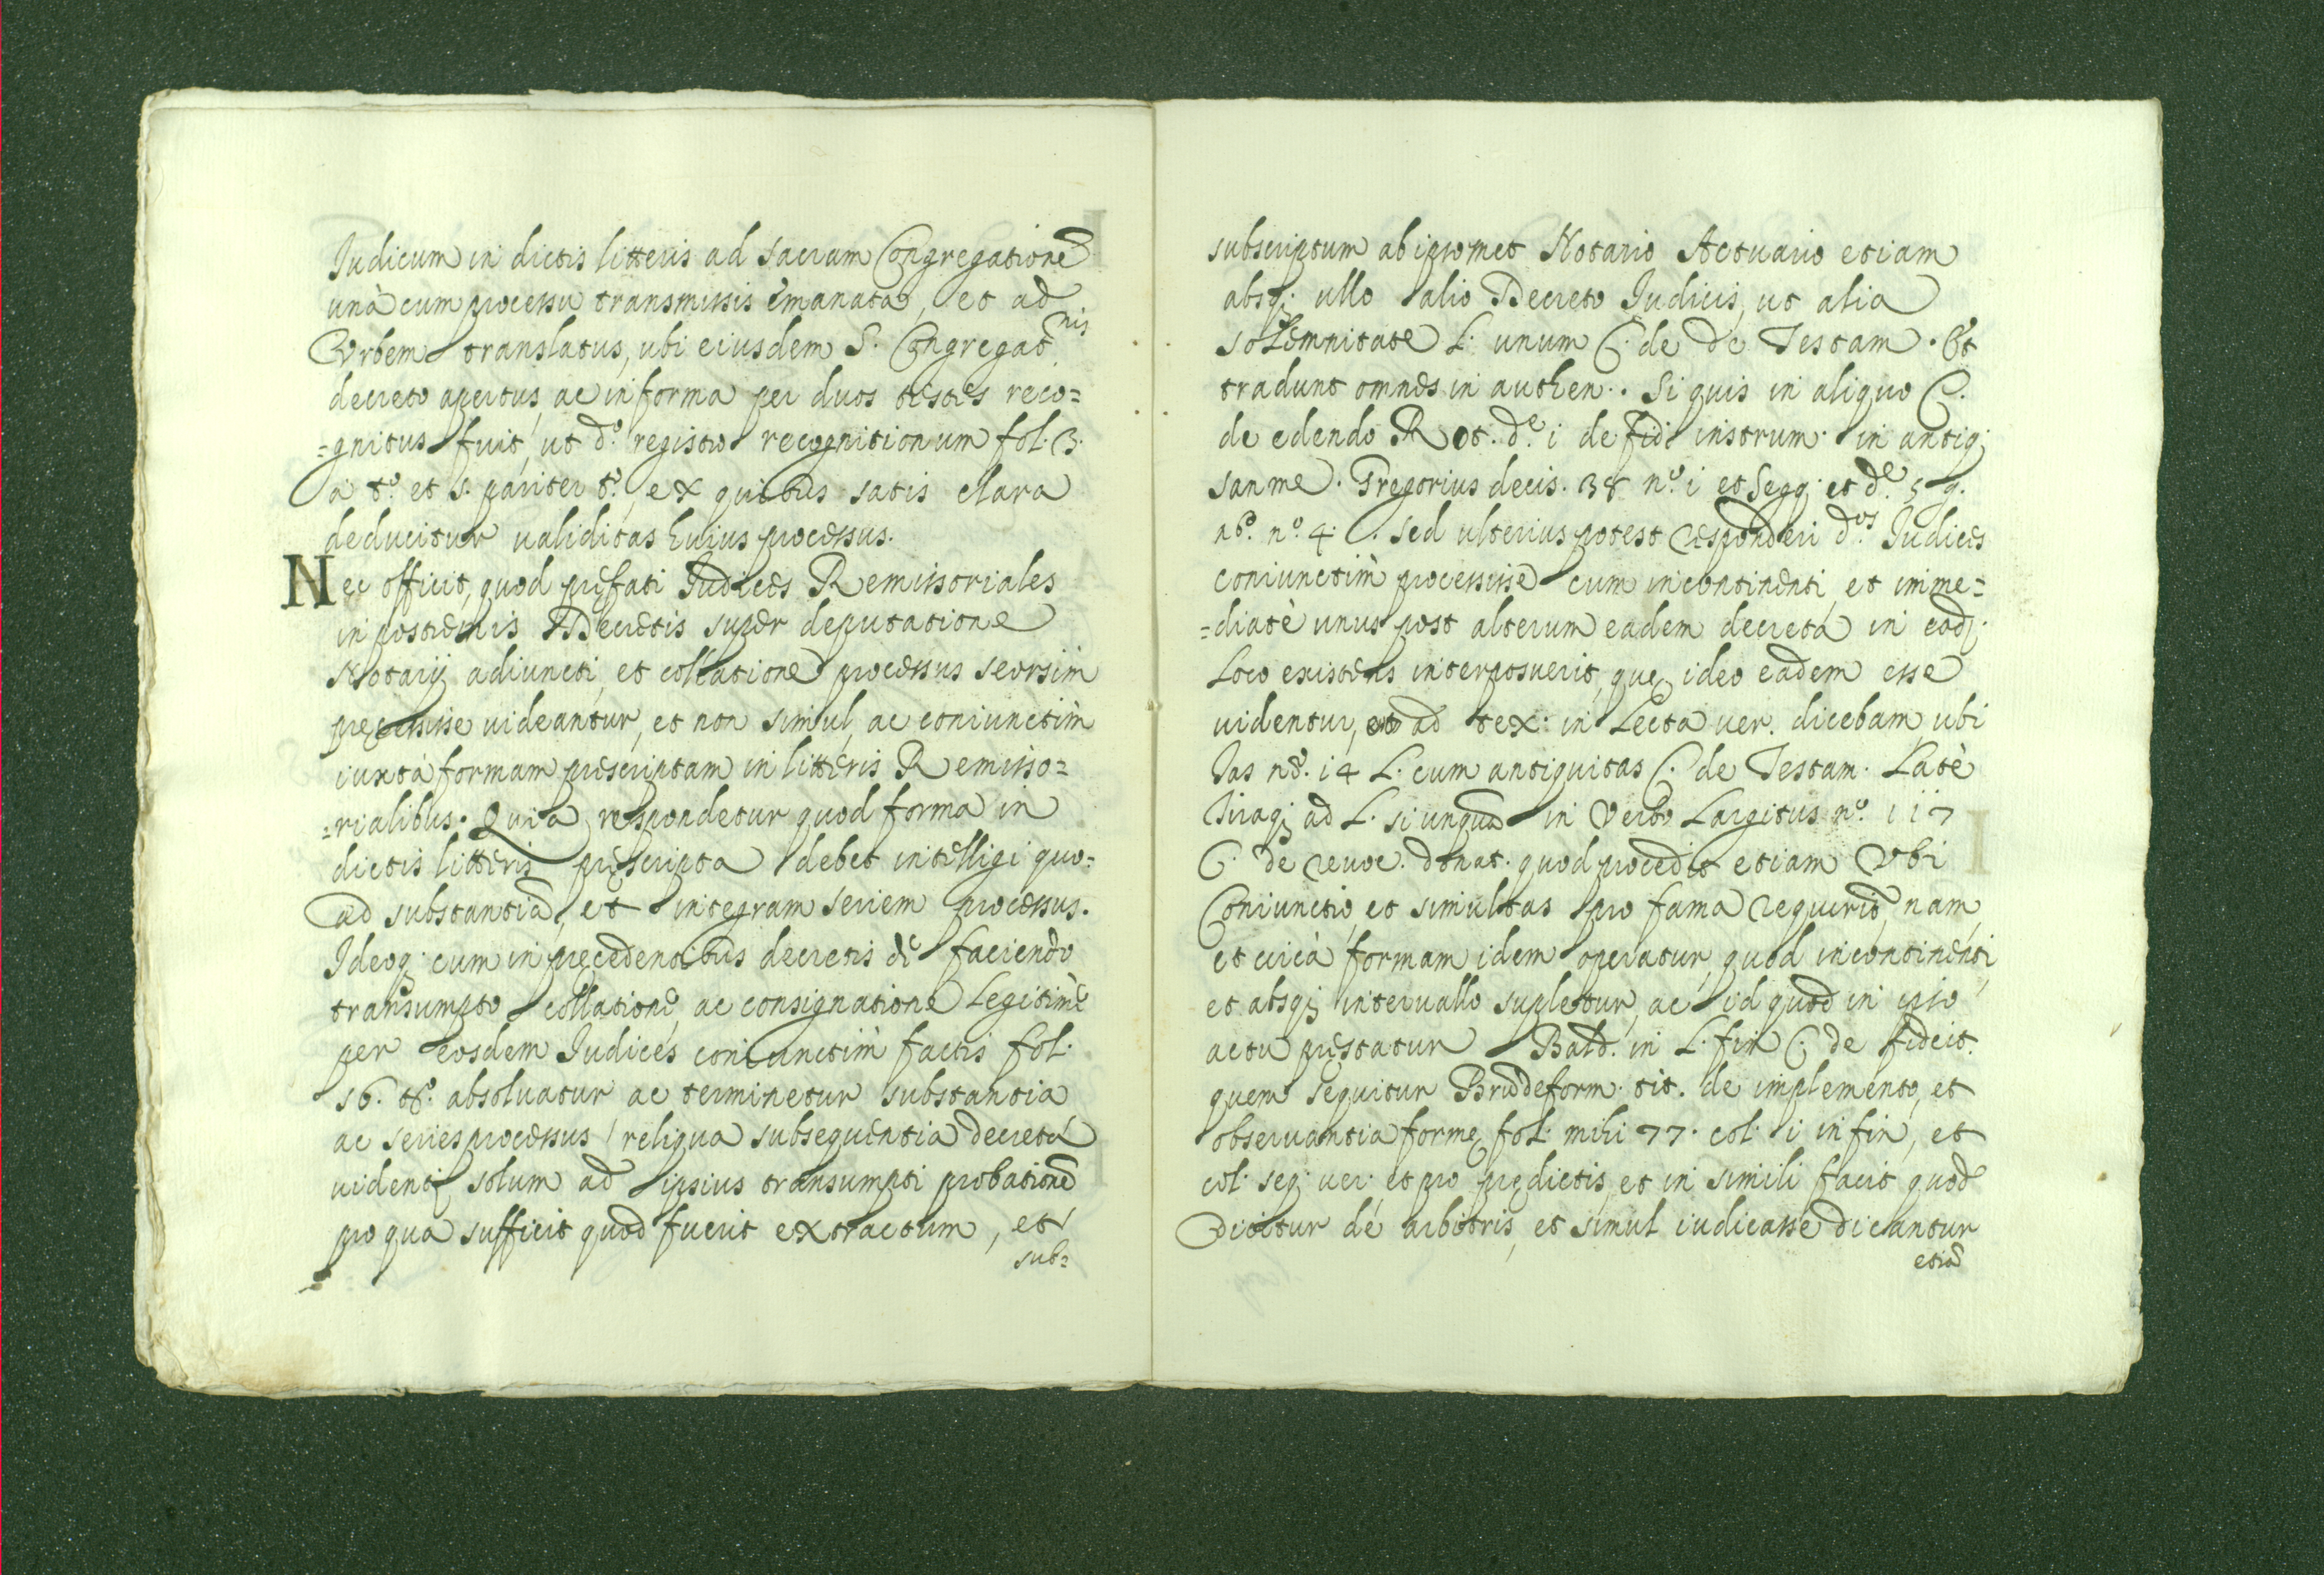 Judicum in dictis litteris ad sacram Congregatione
unà cum processu transmissis emanata, et ad
Vrbem translatus, ubi eiusdem S. Congregatnis
decreto apertus, ac in forma per duos testes reco=
=gnitus fuit, ut do. registro recognitionum fol. 3.
a to. et s. pariter to., ex quibus satis clara
deducitur validitas huius processus.
Nec officit, quod prefati Judices Remissoriales
in postremis Decretis super deputatione
Notarij adiuncti, et collatione processus seorsim
precessisse uideantur, et non simul, ac coniunctim
iuxta formam prescriptam in litteris Remisso=
=rialibus. Quia respondetur quod forma in
dictis litteris prescripta debet intelligi quo=
ad substantiã, et integram seriem processus.
Ideoq; cum in precedentibus decretis de faciendo
transumpto collatione, ac consignatione Legitimè
per eosdem Judices coniunctim factis fol.
56. to. absoluatur ac terminetur substantia
ac series processus, reliqua subsequentia decreta
uident; solum ad ipsius transumpti probatione
pro qua sufficit quod fuerit extractum, et
sub=
subscriptum ab ipsomet Notario Actuario etiam
absq; ullo alio Decreto Judicis, ut alia
solemnitate L. unum C. de de Testam. Et
tradunt omnes in authen. Si quis in aliquo C.
de edendo Rot. de. i de fid. instrum. in antiq;
san me. Gregorius decis. 38 no. i et seqq. et de. 59.
no. 4. C. sed ulterius potest responderi dos. Judices
coniunctim processisse cum incontinenti, et imme=
=diatè unus post alterum eadem decreta in eod;
Loco existens interposuerit, que ideo eadem esse
uidentur, ad tex. in Lecta uer. dicebam ubi
Jas no. 14 L. cum antiquitas C. de Testam. Latè
Tiraq; ad L. si unquã in verbo Largitus no. 117
C. de reuoc. donat. quod procedit etiam Vbi
Coniunctio, et simultas pro fama requirit, nam,
et circa formam idem operatur, quod incontinenti,
et absq; interuallo supletur, ac id quod in ipso
actu prestatur Bald. in L. fin C. de fideit.
quem sequitur Brũ de form. tit. de implemento, et
obseruantia forme fol. mihi 77. col. i in fin, et
col. seq. uer. et pro predictis, et in simili facit quod
Dicitur de arbitris, et simul iudicasse dicantur
etiã